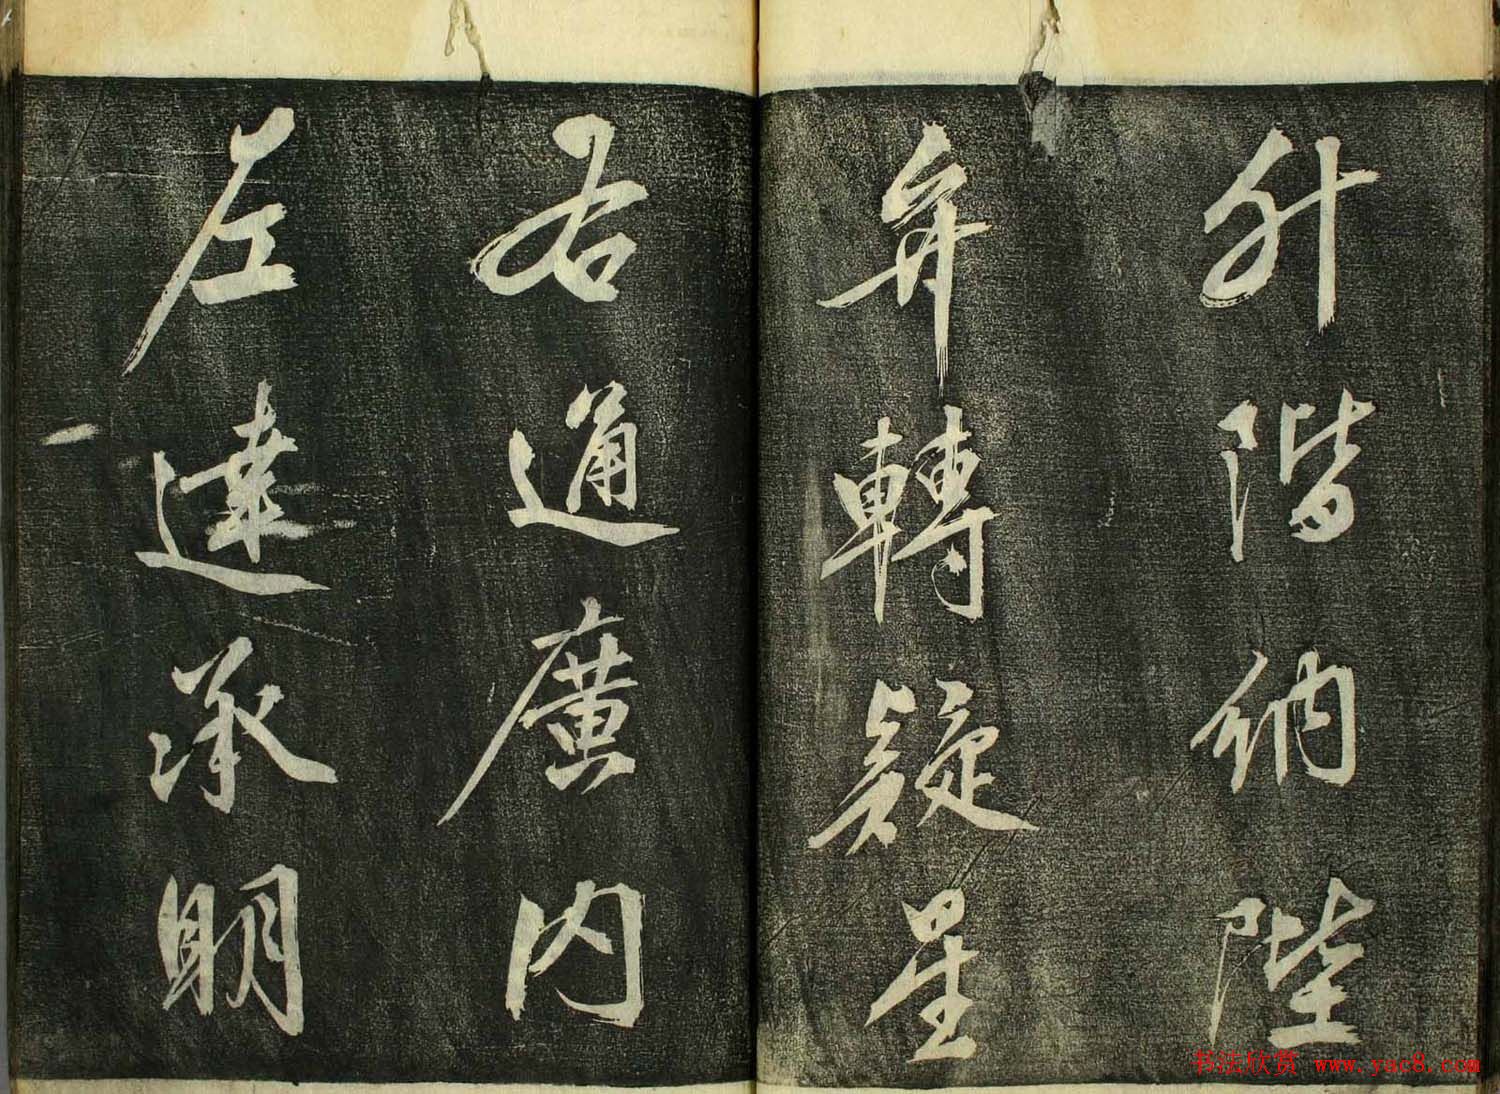 升階納陛
弁轉疑星
右通廣内
左達承明
书法欣赏 www.yac8.com